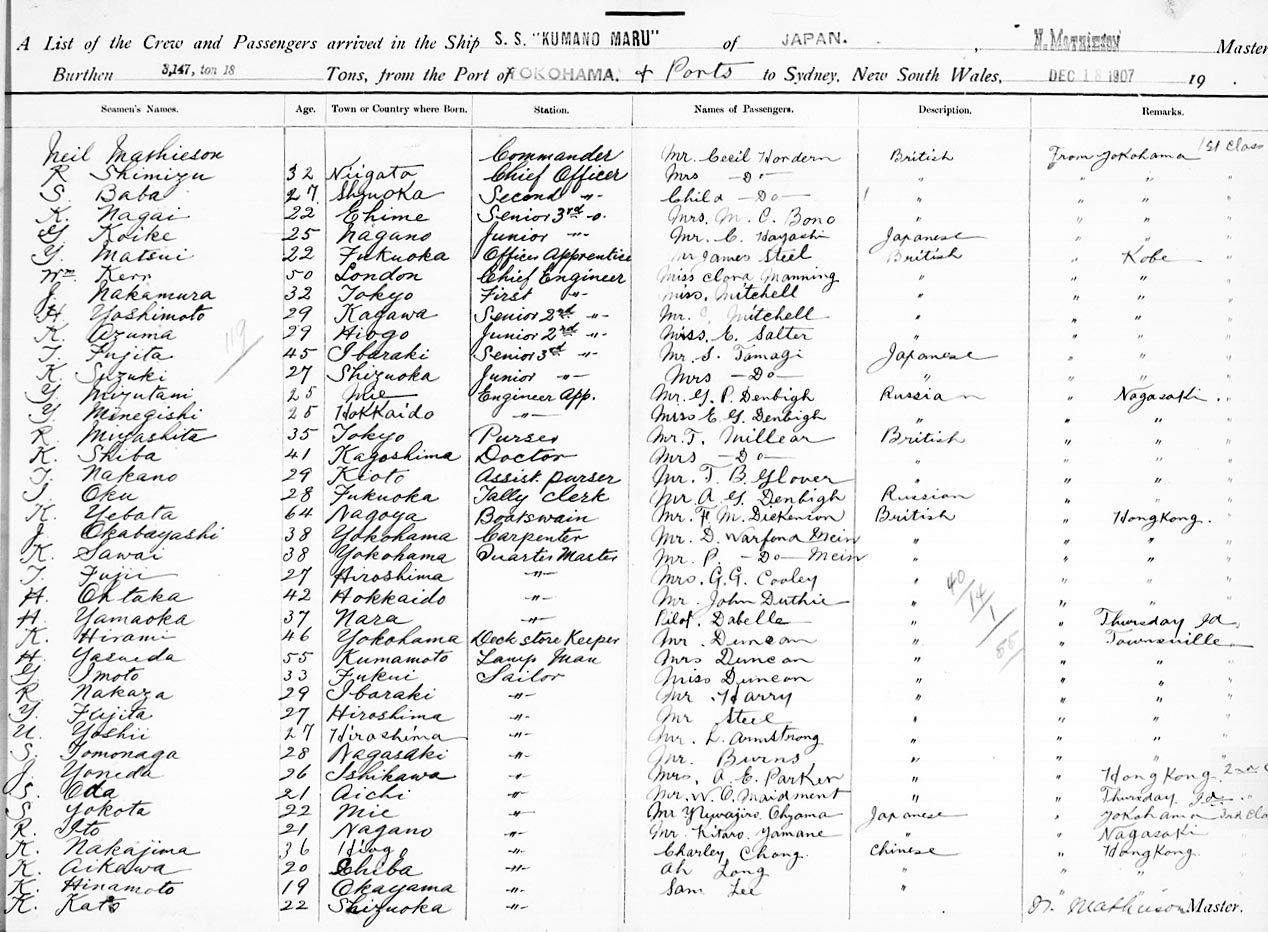 A List of the Crew and Passengers arrived in the Ship S. S. "KUMANO MARU" of JAPAN. , N. MATHIESON Master
Burthen 3,147, ton 18 Tons, from the Port of YOKOHAMA, & Ports to Sydney, New South Wales, DEC 18 1907 19 .
Seamen's Names. Age. Town or Country where Born. Station. Names of Passengers. Description. Remarks.
Neil Mathieson Commander Mr. Cecil Hordern British From Yokohama 1st Class
R. Shimizu 32 Niigata Chief Officer Mrs —Do— " " " "
S. Baba 27 Shizuoka Second " Child —Do— " " " "
K. Nagai 22 Ehime Senior 3rd o. Mrs. M. C. Bono " " " "
Y. Koike 25 Nagano Junior " Mr. C. Hayashi Japanese " " "
Y. Matsui 22 Fukuoka Officer Apprentice Mr James Steel British " Kobe "
Wm Kerr 50 London Chief Engineer Miss Clora Manning " " " "
J. Nakamura 32 Tokyo First " Miss. Mitchell " " " "
H. Yoshimoto 29 Kagawa Senior 2nd " Mr. Mitchell " " " "
K. Azuma 29 Hiogo Junior 2nd " Miss. E. Salter " " " "
T. Fujita 45 Ibaraki Senior 3rd " Mr. S. Tamagi Japanese " " "
K. Suzuki 27 Shizuoka Junior " Mrs —Do— " " " "
Y. Mizutani 25 Mie Engineer App. Mr. G. P. Denbigh Russian " Nagasaki "
Y. Minegishi 25 Hokkaido " Miss E. G. Denbigh " " " "
R. Miyashita 35 Tokyo Purser Mr. T. Millear British " " "
K. Shiba 41 Kagoshima Doctor Mrs —Do— " " " "
T. Nakano 29 Kioto Assist. purser Mr. T. B. Glover " " " "
T. Oku 28 Fukuoka Tally Clerk Mr. A. G. Denbigh Russian " " "
K. Yebata 64 Nagoya Boatswain Mr. F. M. Dickenson British " HongKong. "
J. Okabayashi 38 Yokohama Carpenter Mr. D. Warfond Mein " " " "
K. Sawai 38 Yokohama Quarter Master Mr. P. —Do— Mein " " " "
T. Fujii 27 Hiroshima " Mrs. G. G. Cooley " " " "
H. Ohtaka 42 Hokkaido " Mr. John Duthie " " " "
H. Yamaoka 37 Nara " Pilot. Dabelle " " Thursday Id. "
K. Hirami 46 Yokohama Deck store Keeper Mr. Duncan " " Townsville "
H. Yasueda 55 Kumamoto Lamp Man Mrs Duncan " " " "
Y. Imoto 33 Fukui Sailor Miss Duncan " " " "
R. Nakaza 29 Ibaraki " Mr. Harry " " " "
Y. Fujita 27 Hiroshima " Mr Steel " " " "
U. Yoshii 27 Hiroshima " Mr. L. Armstrong " " " "
S. Tomonaga 28 Nagasaki " Mr. Burns " " " "
J. Yoneda 26 Ishikawa " Mrs. A. E. Parker " " HongKong. 2nd
S. Oda 21 Aichi " Mr. W. C. Maidment " " Thursday Id. "
S. Yokota 22 Mie " Mr Yujiro Ohyama Japanese " Yokohama 3rd Cla
R. Ito 21 Nagano " Mr. Kitaro Yamane " " Nagasaki "
K. Nakajima 36 Hiogo " Charley Chong. Chinese " HongKong. "
K. Aikawa 20 Chiba " Ah Long " " " "
K. Hinamoto 19 Okayama " Sam Lee " " " "
K. Kato 22 Shizuoka " N. Mathieson Master.
119
40/14/1/55